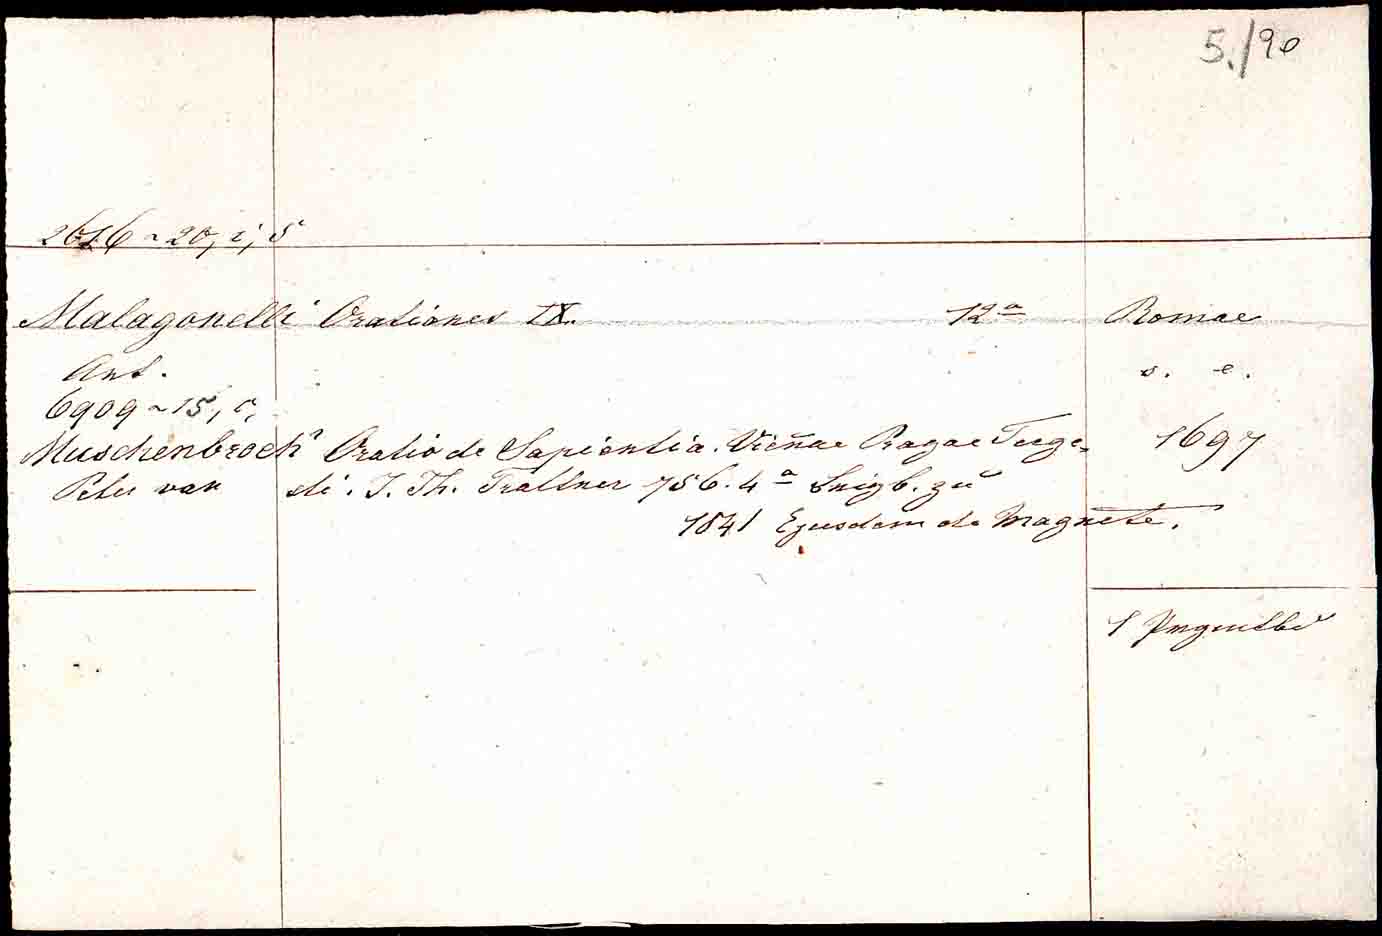 5./90
2616 ~ 20, i, 5
Malagonelli Orationes IX. 12a Romae
Ant. s. e.
6909 ~ 15, c,
Muschenbroek Oratio de Sapientia. Vieñae Pragae Terge- 1697
Peter van sti. J. Th. Trattner 756. 4a beigb. zu
1841 Ejusdem de Magnete.
1